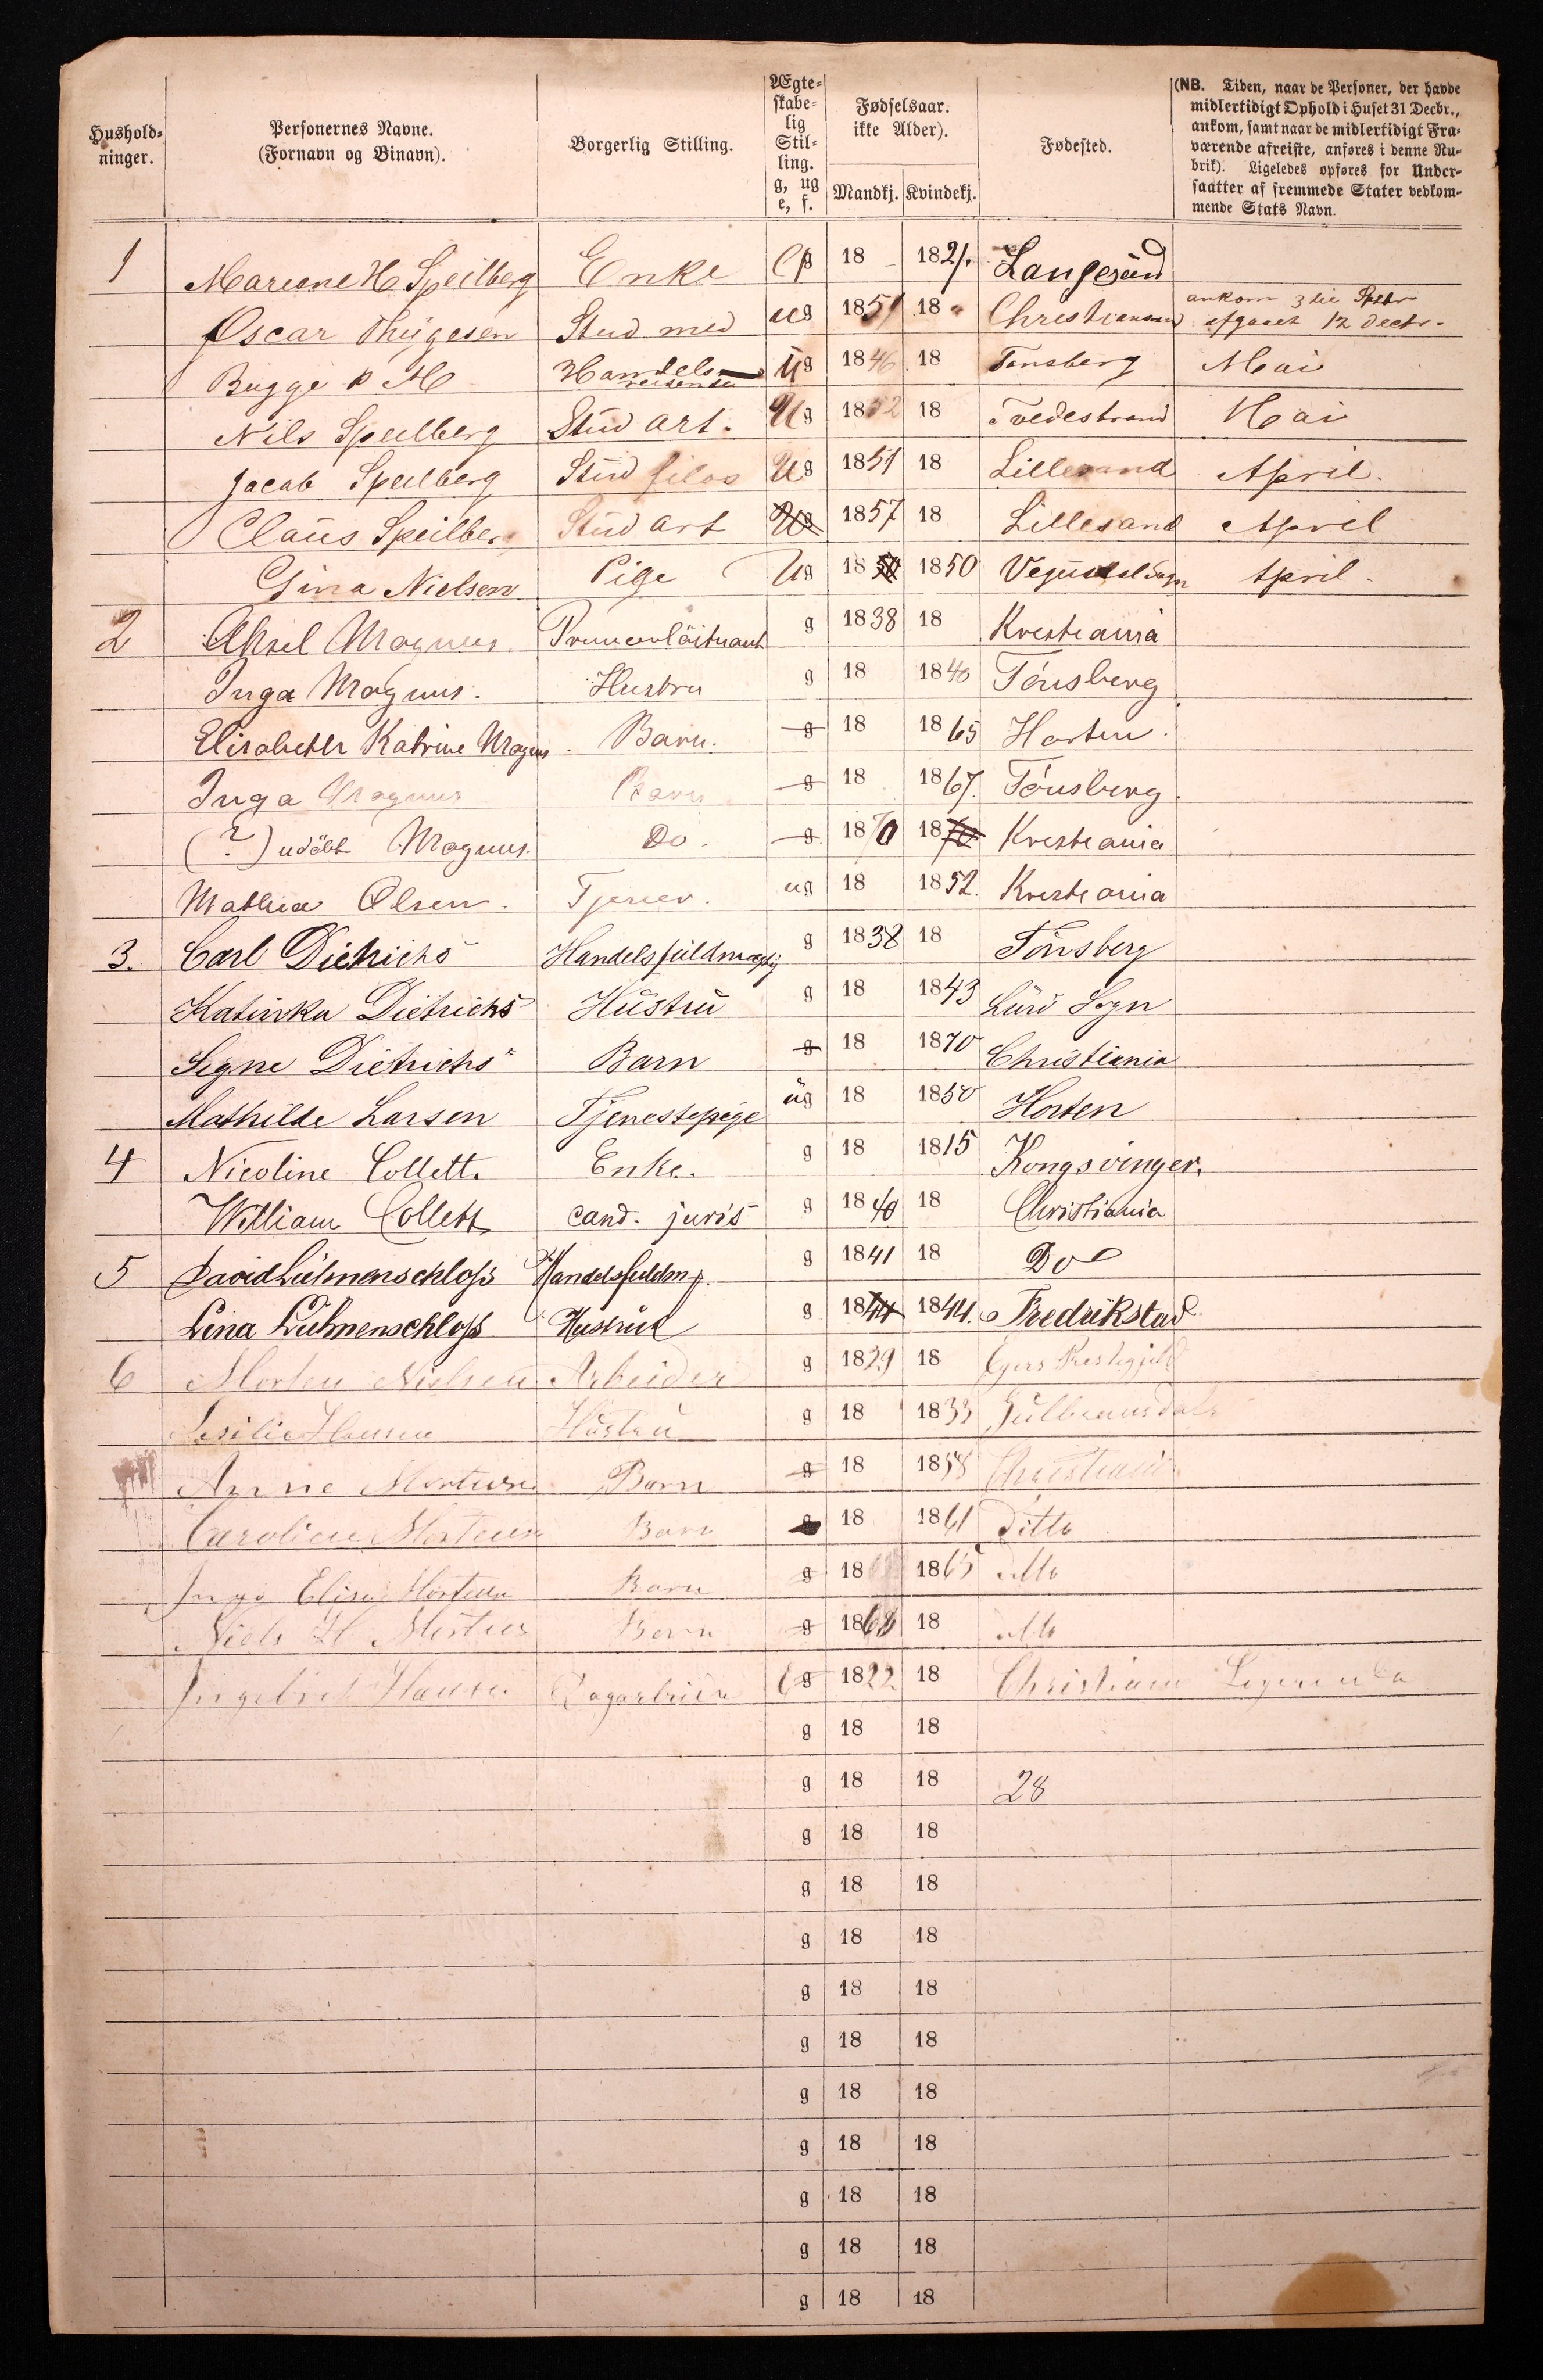 Hushold-
ninger.
Personernes Navne.
(Fornavn og Binavn).
Borgerlig Stilling.
Ægte-
skabe-
lig
Stil-
ling.
g, ug
e, f.
Fødselsaar.
ikke Alder).
Mandkj. Kvindekj.
Fødested.
(NB. Tiden, naar de Personer, der havde
midlertidigt Ophold i Huset 31 Decbr.,
ankom, samt naar de midlertidigt Fra-
værende afreiste, anføres i denne Ru-
brik). Ligeledes opføres for Under-
saatter af fremmede Stater vedkom-
mende Stats Navn.
1 Mariane H Speilberg Enke 18 1821. Langesund
Oscar Thygesen Stud med ug 1851 18 Christiansand ankom 3die afgaaet 12 Decbr.
Bugge P M Handels reisende ug 1846 18 Tønsberg Mai
Nils Speilberg Stud art. Ug 1852 18 Tvedestrand Mai
Jacob Speilberg Stud filos Ug 1851 18 Lillesand April.
Claus Speilberg Stud art Ug 1857 18 Lillesand April
Gina Nielsen Pige Ug 18 1850 April.
2 Aksel Magnus. Premierløitnant g 1838 18 Kristiania
Inga Magnus. Hustru g 18 1840 Tønsberg
Elisabeth Katrine Magnus. Barn. g 18 1865 Horten.
Inga Magnus Barn g 18 1867. Tønsberg.
(?) udöbt Magnus. Do. g. 1870 1870 Kristiania
Mathea Olsen. Tjener. ug 18 1852. Kristiania
3. Carl Dietrichs Handelsfuldmægtig g 1838 18 Tønsberg
Katinka Dietrichs Hustru g 18 1843 Sogn
Signe Dietrichs Barn g 18 1870 Christiania
Mathilde Larsen Tjenestepige ug 18 1850 Horten
4 Nicoline Collett. Enke. g 18 1815 Kongsvinger.
William Collett cand. juris g 1840 18 Christiania
5 David Lühmenschloss Handelsfuldm. g 1841 18 Do
Lina Lühmenschloss Hustru g 1844 1844. Fredrikstad
6 Morten Nielsen Arbeider g 1829 18 Egers Prestegjeld
Hansen Hustru g 18 1833 Gulbransdalen
Anne Mortensen Barn g 18 1858 Christiania
Caroline Mortensen Barn g 18 1861 Ditto
Inga Elise Mortensen Barn g 18 1865 ditto
Niels H Mortens Barn g 1868 18 ditto
Ingebret Hansen g 1822 18 Christiania
g 18 18
g 18 18 28
g 18 18
g 18 18
g 18 18
g 18 18
g 18 18
g 18 18
g 18 18
g 18 18
g 18 18
g 18 18